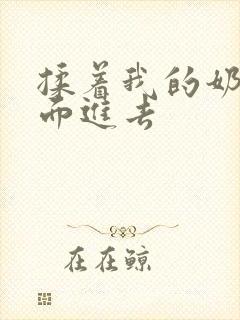 揉着我的奶
而进去
在在鲸